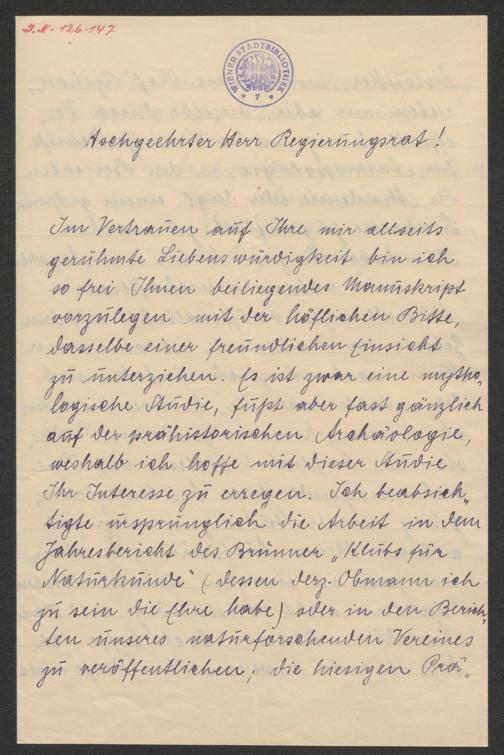 J.N. 126.147
WIENER STADTBIBLIOTHEK
* 7 *
Hochgeehrter Herr Regierungsrat!
Im Vertrauen auf Ihre mir allseits
gerühmte Liebenswürdigkeit bin ich
so frei Ihnen beiliegendes Manuskript
vorzulegen mit der höflichen Bitte,
dasselbe einer freundlichen Einsicht
zu unterziehen. Es ist zwar eine mytho-
logische Studie, fußt aber fast gänzlich
auf der prähistorischen Archäologie,
weshalb ich hoffe mit dieser Studie
Ihr Interesse zu erregen. Ich beabsich„
tigte ursprünglich die Arbeit in dem
Jahresbericht des Brünner „Klubs für
Naturkunde" (dessen derz. Obmann ich
zu sein die Ehre habe) oder in den Berich„
ten unseres naturforschenden Vereines
zu veröffentlichen; die hiesigen Prä„